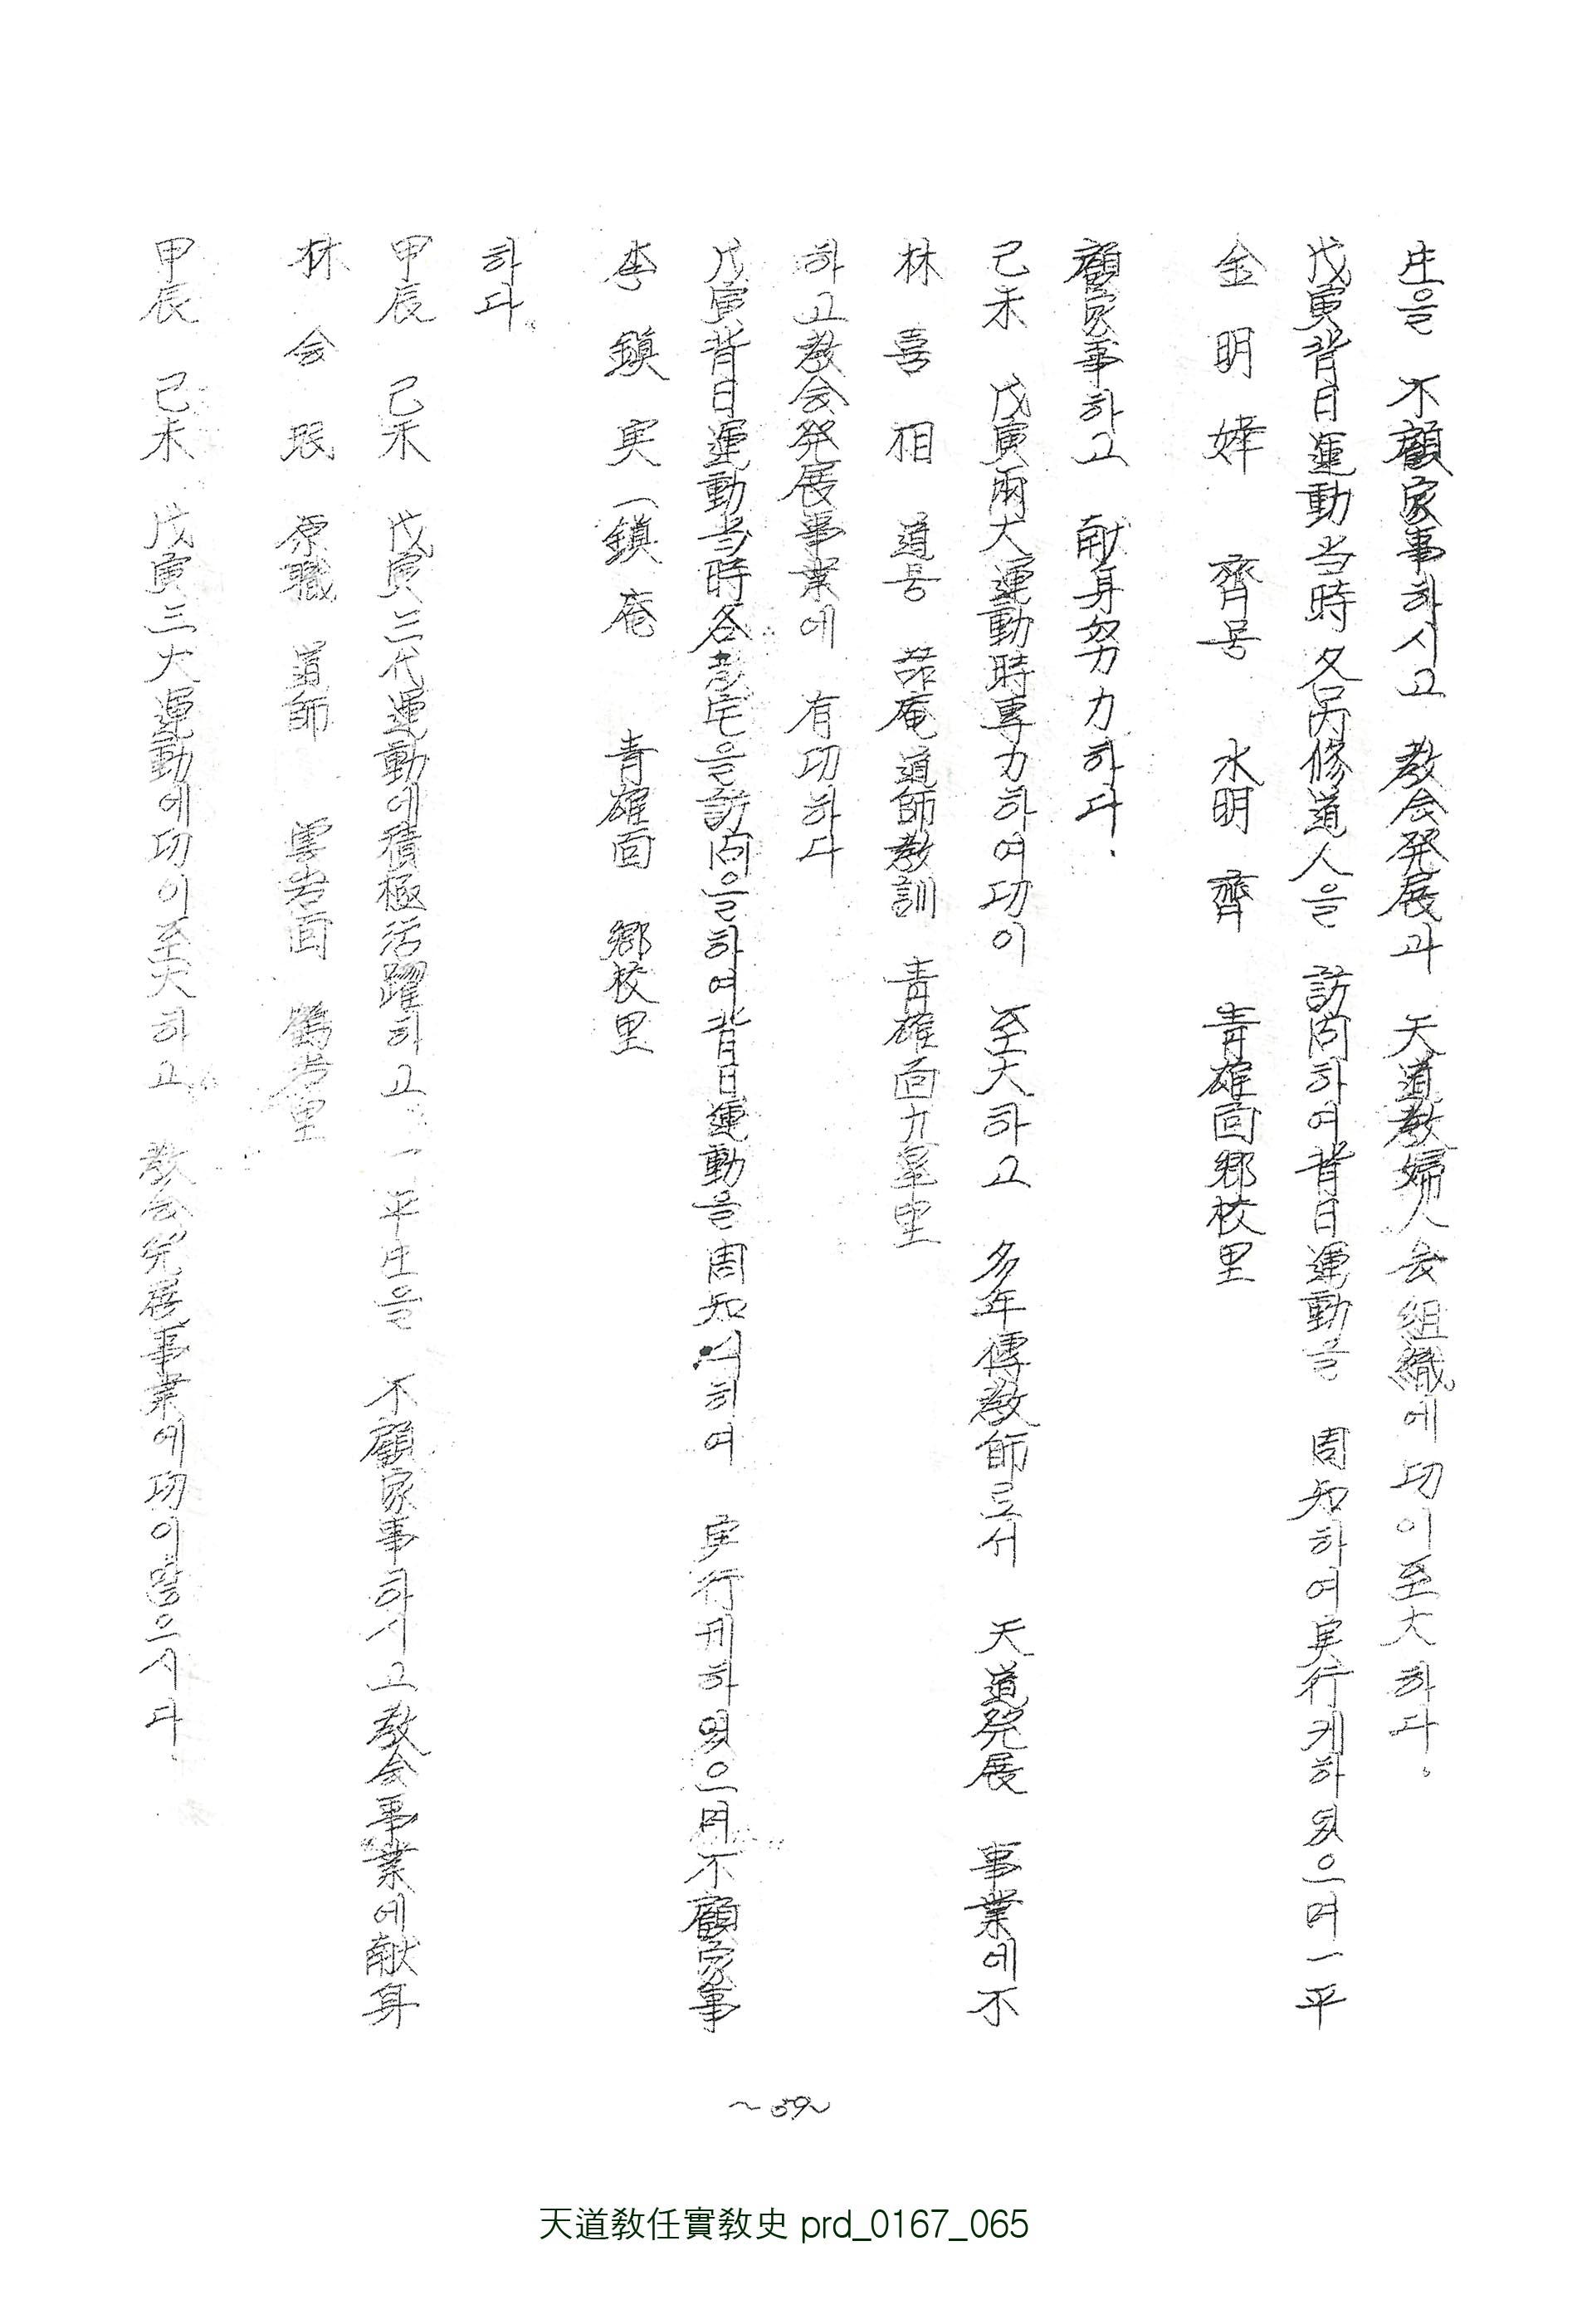 生을 不顧家事하시고 教会発展과 天道教婦人会組織에 功이至大하다.
戊寅背日運動当時 各 修道人을 訪問하여背日運動을 周知하여実行케하였으며一平
金明 齊号 水明齊 青雄面郷校里
顧家事하고 献身努力하다.
己未 戊寅両大運動時専力하여功이 至大하고 多年傳教師로서 天道発展 事業에不
林喜相 道号 菴道師教訓 青雄面九皐里
하고教会発展事業에 有功하다
戊寅背日運動当時各 宅을訪問을하여背日運動을周知시하여 実行케하였으며不顧家事
李鎮実(鎮庵 青雄面 郷校里
하다.
甲辰 己未 戊寅三代運動에積極活躍하고 一平生을 不顧家事하시고教会事業에献身
林会 原職 道師 雲岩面 鶴岩里
甲辰 己未 戊寅三大運動에功이至大하고 教会発展事業에功이많으시다.
~59~
天道敎任實敎史 prd_0167_065